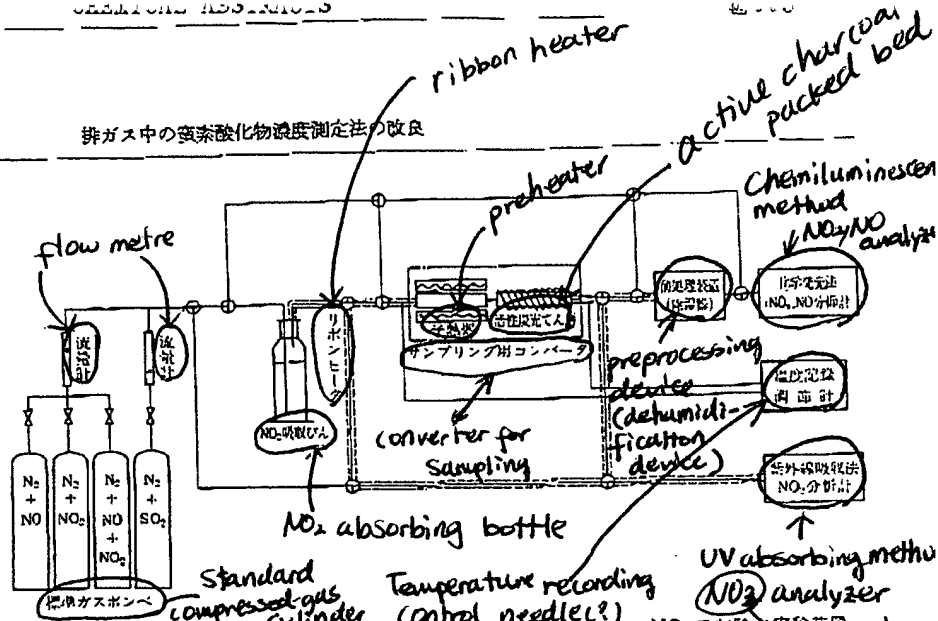 CHEMICAL ABSTRACTS
ribbon heater
active charcoal
packed bed
排ガス中の窒素酸化物濃度測定法の改良
preheater
Chemiluminescen
method
NOx, NO
analyze
flow metre
流量計
流量計
リボンヒータ
予熱器
活性炭充てん
サンプリング用コンバータ
前処理装置
(除湿器)
化学発光法
NOx, NO分析計
preprocessing
device
(dehumidi-
fication
device)
温度記録
調節計
NO2吸収びん
converter for
sampling
紫外線吸収法
NO2分析計
N2
+
NO
N2
+
NO2
N2
+
NO
+
NO2
N2
+
SO2
NO2 absorbing bottle
UV absorbing metho
NO2 analyzer
標準ガスボンベ
Standard
compressed-gas
cylinder
Temperature recording
control needle(?)